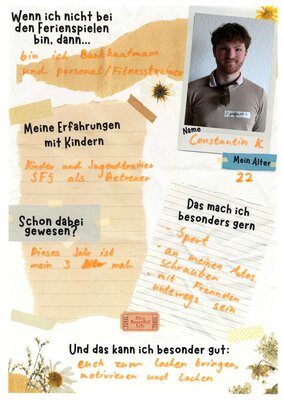 Wenn ich nicht bei
den Ferienspielen
bin, dann...
bin ich Bankkaufmann
und personal/Fitnesstrainer
Name
Constantin K.
Mein Alter
22
Meine Erfahrungen
mit Kindern
Kinder und Jugendtrainer
SFS als Betreuer
Schon dabei
gewesen?
Dieses Jahr ist
mein 3 mal.
Das mach ich
besonders gern
• Sport
• an meinen Autos
schrauben
• mit Freunden
unterwegs sein
Und das kann ich besonder gut:
euch zum lachen bringen,
motivieren und lachen